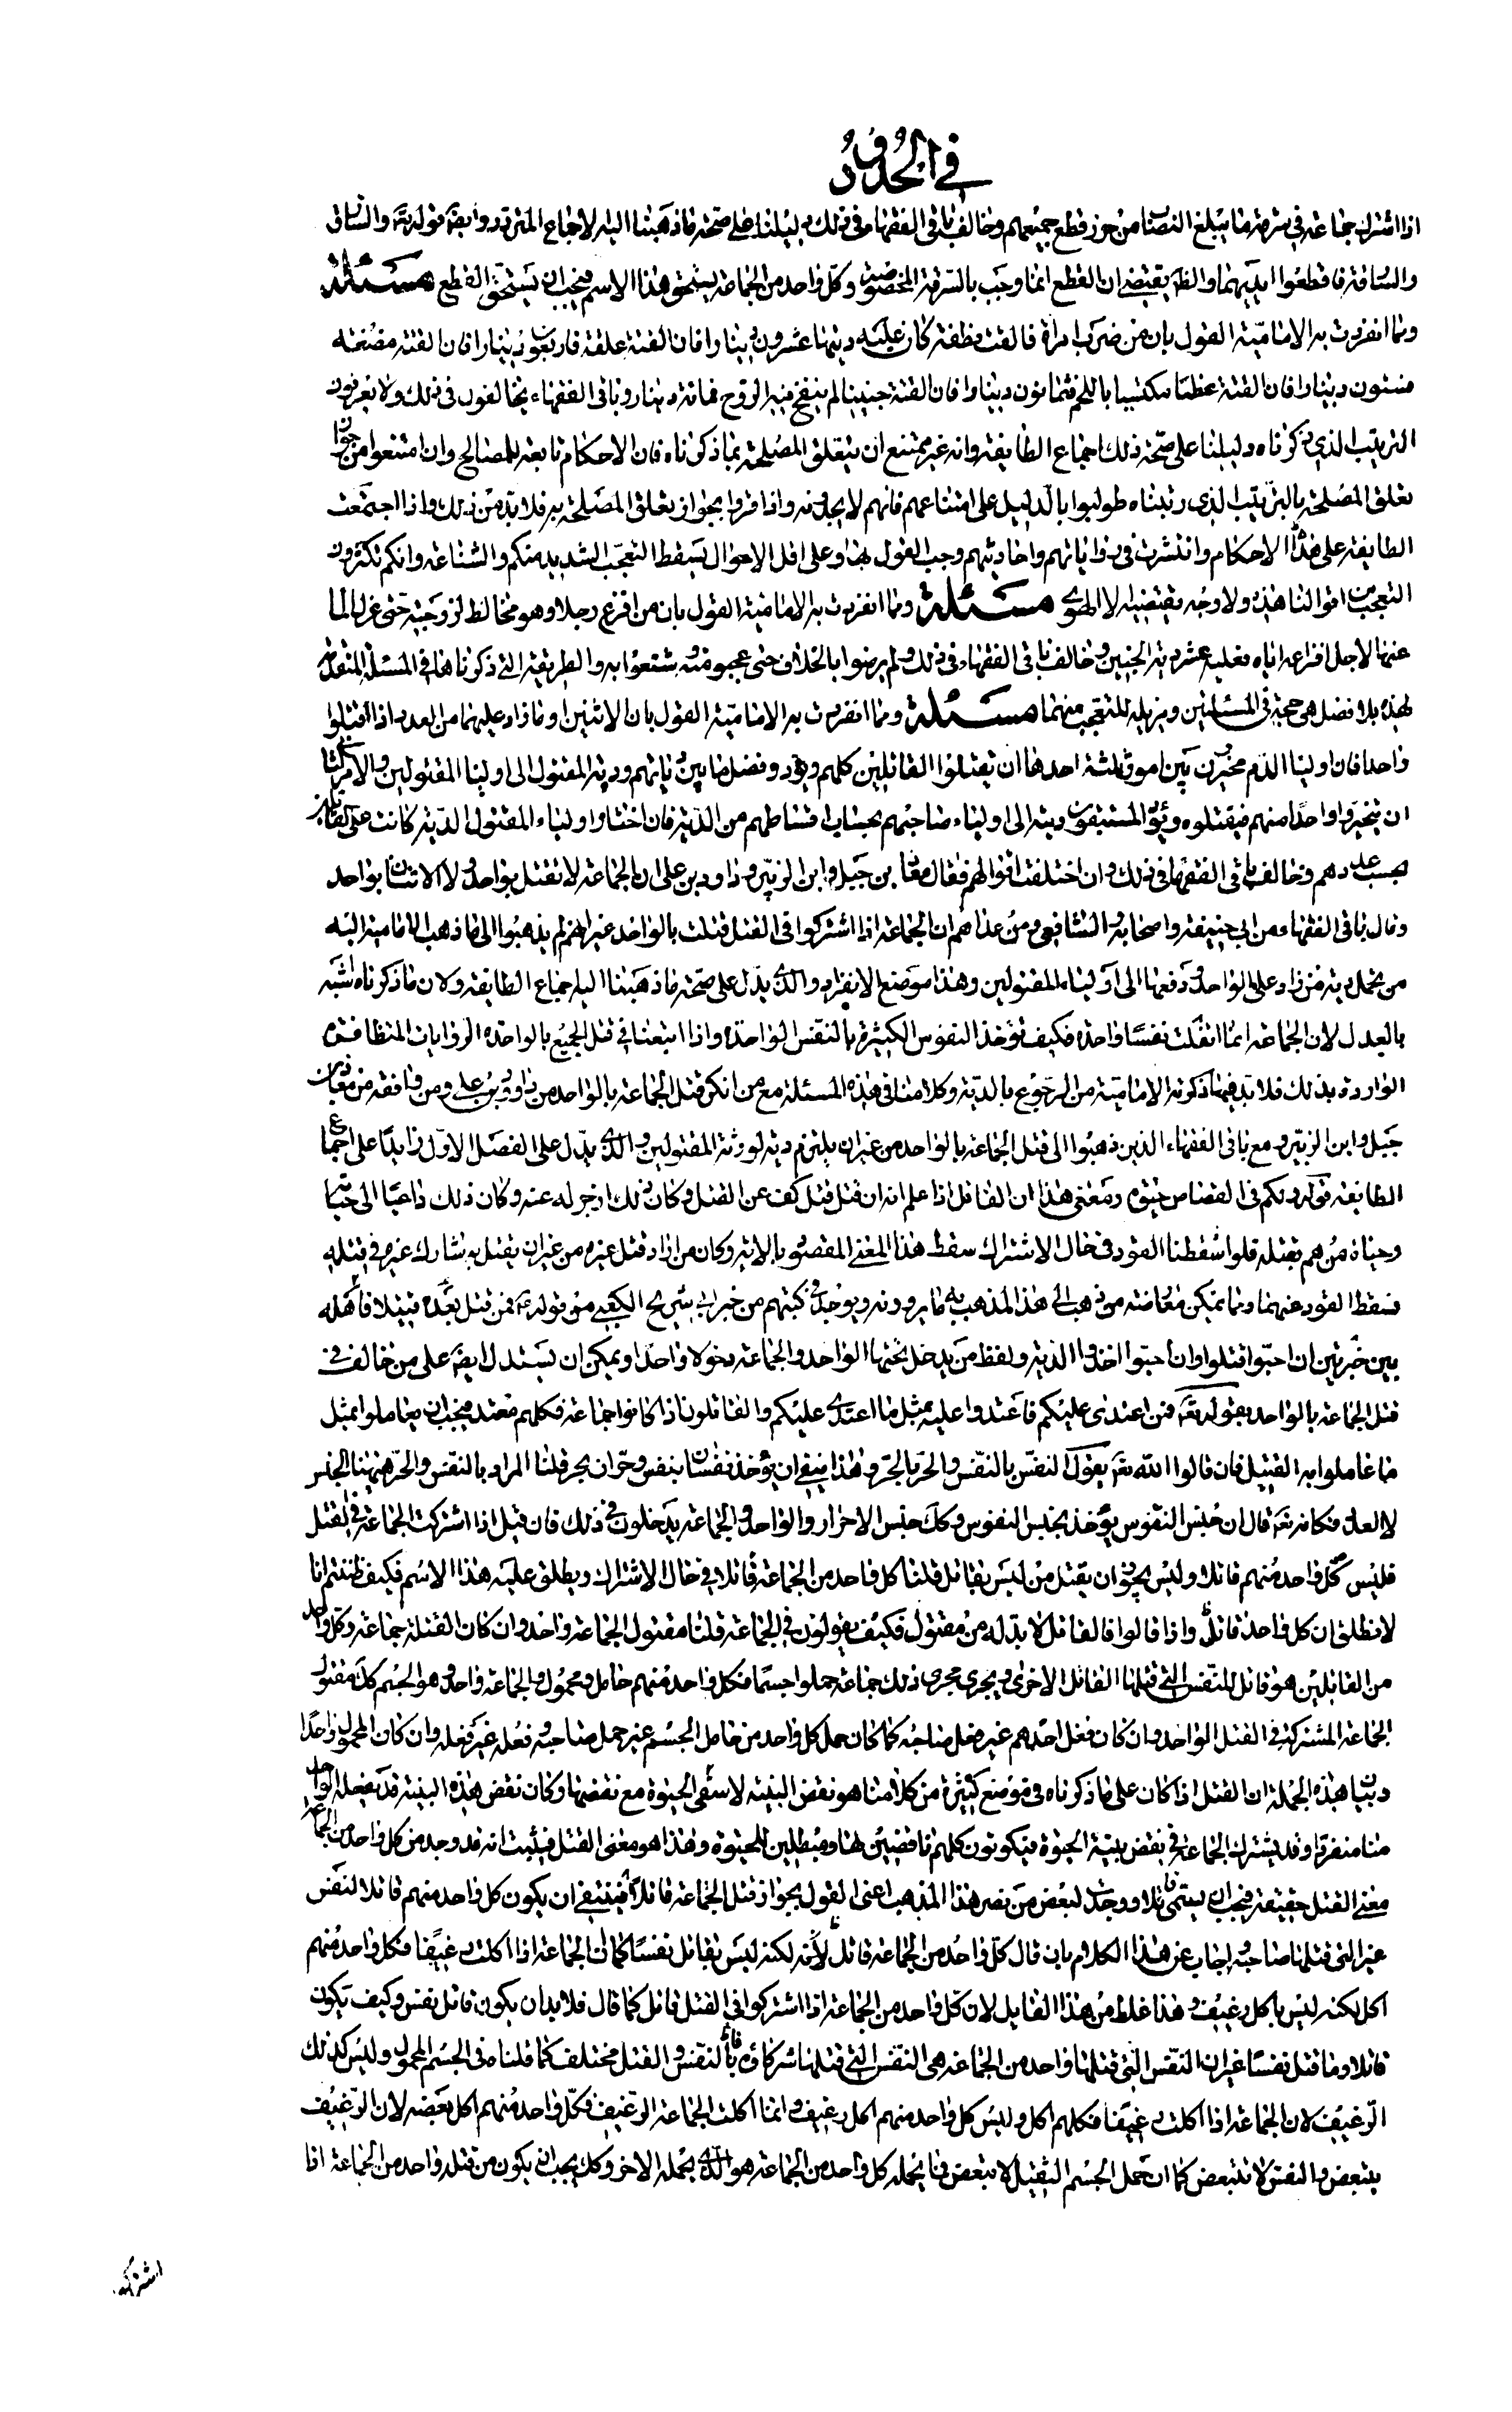 في الحدود
اذا اشترك جماعة في سرقة ما يبلغ النصاب من حرز قطع جميعهم وخالف باقي الفقهاء في ذلك دليلنا على صحة ما ذهبنا اليه الاجماع المتردد وايضا قوله تعالى والسارق
والسارقة فاقطعوا ايديهما والظاهر يقتضي ان القطع انما وجب بالسرقة المخصوصة وكل واحد من الجماعة يستحق هذا الاسم فيجب ان يستحق القطع مسئلة
ومما انفردت به الامامية القول بان من ضرب امراة فالقت نطفة كان عليه ديتها عشرون دينارا فان القت علقة فاربعون دينارا فان القت مضغة
فستون دينارا فان القت عظما مكتسيا باللحم فثمانون دينارا فان القت جنينا لم ينفخ فيه الروح فمائة دينار وباقي الفقهاء يخالفون في ذلك ولا يعرفون
الترتيب الذي ذكرناه دليلنا على صحة ذلك اجماع الطايفة وانه غير ممتنع ان يتعلق المصلحة بما ذكرناه فان الاحكام تابعة للمصالح وان امتنعوا من جواز
تعلق المصلحة بالترتيب الذي رتبناه طولبوا بالدليل على امتناعهم فانهم لا يجدونه واذا اقروا بجواز تعلق المصلحة به فلا بد من ذلك واذا اجتمعت
الطايفة على هذه الاحكام وانتشرت في رواياتهم واحاديثهم وجب القول بها وعلى اقل الاحوال يسقط التعجب الشديد منكم والشناعة وانكم تكثرون
التعجب من اقوالنا هذه ولا وجه يقتضيه الا الهوى مسئلة ومما انفردت به الامامية القول بان من افزع رجلا وهو مخالط لزوجته حتى عزل الماء
عنها لاجل افزاعه اياه فعليه عشر دية الجنين وخالف باقي الفقهاء في ذلك ولم يرضوا بالخلاف حتى عجبوا منه وشنعوا به والطريقة التي ذكرناها في المسئلة المتقدمة
لهذه بلا فصل هي حجة في المسئلتين ومزيلة للتعجب منهما مسئلة ومما انفردت به الامامية القول بان الاثنين وما زاد عليهما من العدد اذا قتلوا
واحدا فان اولياء الدم مخيرون بين امور ثلثة احدها ان يقتلوا القاتلين كلهم ويؤدوا فضل ما بين دياتهم ودية المقتول الى اولياء المقتولين والامر الثاني
ان يتخيروا واحدا منهم فيقتلوه ويؤدي المستبقون ديته الى اولياء صاحبهم بحساب اقساطهم من الدية فان اختار اولياء المقتول الدية كانت على القاتلين
بحسب عددهم وخالف باقي الفقهاء في ذلك وان اختلفت اقوالهم فقال معاذ بن جبل وابن الزبير وداود بن علي ان الجماعة لا تقتل بواحد ولا الاثنان بواحد
وقال باقي الفقهاء من ابي حنيفة واصحابه والشافعي ومن عداهم ان الجماعة اذا اشتركوا في القتل قتلت بالواحد غير انهم لم يذهبوا الى ما ذهب الامامية اليه
من تحمل دية من زاد على الواحد ودفعها الى اولياء المقتولين وهذا موضع الانفراد والذي يدل على صحة ما ذهبنا اليه اجماع الطايفة ولان ما ذكرناه اشبه
بالعدل لان الجماعة انما اتلفت نفسا واحدة فكيف تؤخذ النفوس الكثيرة بالنفس الواحدة واذا اتبعنا في قتل الجميع بالواحدة الروايات المتظافرة
الواردة بذلك فلا بد فيما ذكرته الامامية من الرجوع بالدية وكلامنا في هذه المسئلة مع من انكر قتل الجماعة بالواحد من داود بن علي ومن وافقه من معاذ بن
جبل وابن الزبير ومع باقي الفقهاء الذين ذهبوا الى قتل الجماعة بالواحد من غير ان يلتزم دية لورثة المقتولين والذي يدل على الفصل الاول زايدا على اجماع
الطايفة قوله ولكم في القصاص حيوة ومعنى هذا ان القاتل اذا علم انه ان قتل قتل كف عن القتل وكان ذلك ازجر له عنه وكان ذلك داعيا الى حياته
وحياة من هم بقتله فلو اسقطنا القود في حال الاشتراك سقط هذا المعنى المقصود بالاية وكان من اراد قتل غيره من غير ان يقتل به شارك غيره في قتله
فسقط القود عنهما ومما يمكن معارضة من ذهب الى هذا المذهب به ما يروونه ويوجد في كتبهم من خبر ابي شريح الكعبي من قوله فمن قتل بعده قتيلا فاهله
بين خيرتين ان احبوا قتلوا وان احبوا اخذوا الدية ولفظ من يدخل تحتها الواحد والجماعة دخولا واحدا ويمكن ان يستدل ايضا على من خالف في
قتل الجماعة بالواحد بقوله تعالى فمن اعتدى عليكم فاعتدوا عليه بمثل ما اعتدى عليكم والقاتلون اذا كانوا جماعة فكلهم معتد فيجب ان يعاملوا بمثل
ما عاملوا به القتيل فان قالوا الله تعالى يقول النفس بالنفس والحر بالحر وهذا ينفي ان يؤخذ نفسان بنفس وحران بحر قلنا المراد بالنفس والحر ههنا الجنس
لا العدد فكانه تعالى قال ان جنس النفوس يؤخذ بجنس النفوس وكذلك جنس الاحرار والواحد والجماعة يدخلون في ذلك فان قيل اذا اشتركت الجماعة في القتل
فليس كل واحد منهم قاتلا وليس يجوز ان يقتل من ليس بقاتل قلنا كل واحد من الجماعة قاتل في حال الاشتراك ويطلق عليه هذا الاسم فكيف ظننتم انا
لا نطلق ان كل واحد قاتل واذا قالوا فالقاتل لا بد له من مقتول فكيف يقولون في الجماعة قلنا مقتول الجماعة واحد وان كان القتلة جماعة وكل واحد
من القاتلين هو قاتل للنفس التي قتلها القاتل الاخر ويجري مجرى ذلك جماعة حملوا جسما فكل واحد منهم حامل ومحمول الجماعة واحد وهو الجسم كذلك مقتول
الجماعة المشتركة في القتل الواحد وان كان فعل احدهم غير فعل صاحبه كما كان حمل كل واحد من حامل الجسم غير حمل صاحبه وفعله غير فعله وان كان المحمول واحدا
وبيان هذه الجملة ان القتل اذا كان على ما ذكرناه في موضع كثيرة من كلامنا هو نقض البنية لا تبقى الحيوة مع نقضها وكان نقض هذه البنية قد يفعله الواحد
منا منفردا وقد يشترك الجماعة في نقض بنية الحيوة فيكونون كلهم ناقضين لها ومبطلين للحيوة وهذا هو معنى القتل فيثبت انه قد وجد من كل واحد من الجماعة
معنى القتل حقيقة فيجب ان يسمى قاتلا ووجدت لبعض من نصر هذا المذهب اعني القول بجواز قتل الجماعة قاتلا فينبغي ان يكون كل واحد منهم قاتلا لنفس
غير التي قتلها صاحبه واجاب عن هذا الكلام بان قال كل واحد من الجماعة قاتل لكنه ليس بقاتل نفسا كما ان الجماعة اذا اكلت رغيفا فكل واحد منهم
اكل لكنه ليس باكل رغيف وهذا غلط من هذا القايل لان كل واحد من الجماعة اذا اشتركوا في القتل قاتل كما قال فلا بد ان يكون قاتل نفس وكيف يكون
قاتلا وما قتل نفسا غير ان النفس التي قتلها واحد من الجماعة هي النفس التي قتلها شركاؤه والقتل مختلف كما قلناه في الجسم المحمول وليس كذلك
الرغيف لان الجماعة اذا اكلت رغيفا فكلهم اكل وليس كل واحد منهم اكل رغيف وانما اكلت الجماعة الرغيف فكل واحد منهم اكل بعضه لان الرغيف
يتبعض والنفس لا تتبعض كما ان حمل الجسم الثقيل لا يتبعض فما يحمله كل واحد من الجماعة هو الذي يحمله الاخر وكذلك يجب ان يكون من قتله واحد من الجماعة اذا
اشتركوا